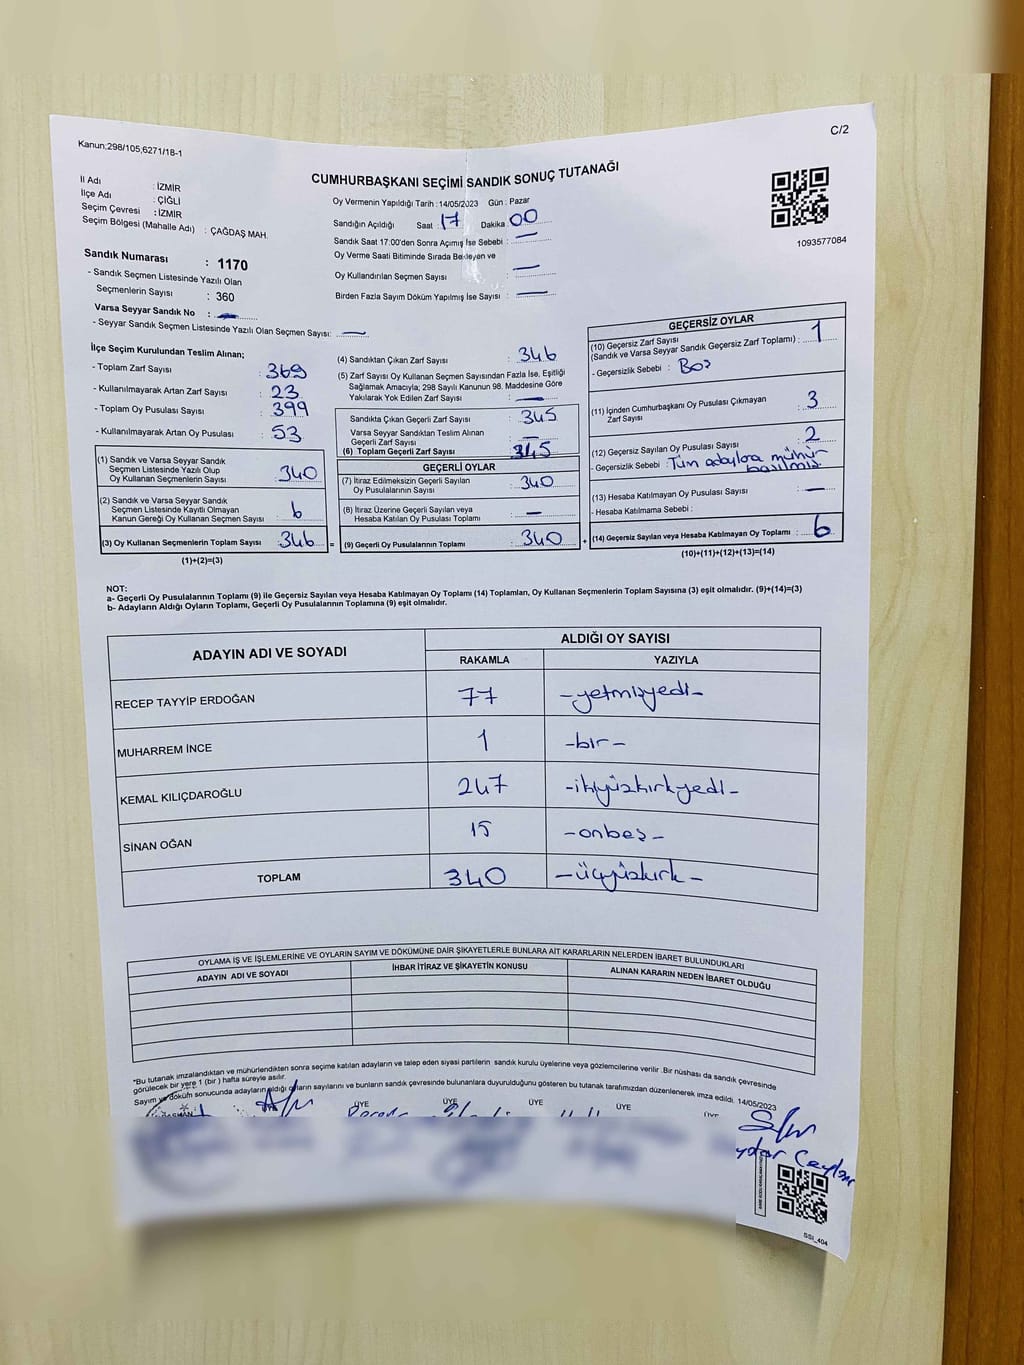 C/2
Kanun;298/105,6271/18-1
CUMHURBAŞKANI SEÇİMİ SANDIK SONUÇ TUTANAĞI
İl Adı : İZMİR
İlçe Adı : ÇİĞLİ
Seçim Çevresi : İZMİR
Seçim Bölgesi (Mahalle Adı) : ÇAĞDAŞ MAH.
Sandık Numarası : 1170
- Sandık Seçmen Listesinde Yazılı Olan
Seçmenlerin Sayısı : 360
Varsa Seyyar Sandık No : —
- Seyyar Sandık Seçmen Listesinde Yazılı Olan Seçmen Sayısı: —
Oy Vermenin Yapıldığı Tarih : 14/05/2023 Gün : Pazar
Sandığın Açıldığı Saat : 17 Dakika : 00
Sandık Saat 17:00'den Sonra Açımış İse Sebebi : —
Oy Verme Saati Bitiminde Sırada Bekleyen ve
Oy Kullandırılan Seçmen Sayısı : —
Birden Fazla Sayım Döküm Yapılmış İse Sayısı : —
1093577084
İlçe Seçim Kurulundan Teslim Alınan;
- Toplam Zarf Sayısı : 369
- Kullanılmayarak Artan Zarf Sayısı : 23
- Toplam Oy Pusulası Sayısı : 399
- Kullanılmayarak Artan Oy Pusulası : 53
(1) Sandık ve Varsa Seyyar Sandık
Seçmen Listesinde Yazılı Olup
Oy Kullanan Seçmenlerin Sayısı : 340
(2) Sandık ve Varsa Seyyar Sandık
Seçmen Listesinde Kayıtlı Olmayan
Kanun Gereği Oy Kullanan Seçmen Sayısı : 6
(3) Oy Kullanan Seçmenlerin Toplam Sayısı : 346 =
(1)+(2)=(3)
(4) Sandıktan Çıkan Zarf Sayısı : 346
(5) Zarf Sayısı Oy Kullanan Seçmen Sayısından Fazla İse, Eşitliği
Sağlamak Amacıyla; 298 Sayılı Kanunun 98. Maddesine Göre
Yakılarak Yok Edilen Zarf Sayısı : —
Sandıkta Çıkan Geçerli Zarf Sayısı : 345
Varsa Seyyar Sandıktan Teslim Alınan
Geçerli Zarf Sayısı : —
(6) Toplam Geçerli Zarf Sayısı : 345
GEÇERLİ OYLAR
(7) İtiraz Edilmeksizin Geçerli Sayılan
Oy Pusulalarının Sayısı : 340
(8) İtiraz Üzerine Geçerli Sayılan veya
Hesaba Katılan Oy Pusulası Toplamı : —
(9) Geçerli Oy Pusulalarının Toplamı : 340 +
GEÇERSİZ OYLAR
(10) Geçersiz Zarf Sayısı
(Sandık ve Varsa Seyyar Sandık Geçersiz Zarf Toplamı) : 1
- Geçersizlik Sebebi : Boş
(11) İçinden Cumhurbaşkanı Oy Pusulası Çıkmayan
Zarf Sayısı : 3
(12) Geçersiz Sayılan Oy Pusulası Sayısı : 2
- Geçersizlik Sebebi : Tüm adaylara mühür
basılmış.
(13) Hesaba Katılmayan Oy Pusulası Sayısı : —
- Hesaba Katılmama Sebebi :
(14) Geçersiz Sayılan veya Hesaba Katılmayan Oy Toplamı : 6
(10)+(11)+(12)+(13)=(14)
NOT:
a- Geçerli Oy Pusulalarının Toplamı (9) ile Geçersiz Sayılan veya Hesaba Katılmayan Oy Toplamı (14) Toplamları, Oy Kullanan Seçmenlerin Toplam Sayısına (3) eşit olmalıdır. (9)+(14)=(3)
b- Adayların Aldığı Oyların Toplamı, Geçerli Oy Pusulalarının Toplamına (9) eşit olmalıdır.
ADAYIN ADI VE SOYADI ALDIĞI OY SAYISI
RAKAMLA YAZIYLA
RECEP TAYYİP ERDOĞAN 77 -yetmişyedi-
MUHARREM İNCE 1 -bir-
KEMAL KILIÇDAROĞLU 247 -ikiyüzkırkyedi-
SİNAN OĞAN 15 -onbeş-
TOPLAM 340 -üçyüzkırk-
OYLAMA İŞ VE İŞLEMLERİNE VE OYLARIN SAYIM VE DÖKÜMÜNE DAİR ŞİKAYETLERLE BUNLARA AİT KARARLARIN NELERDEN İBARET BULUNDUKLARI
ADAYIN ADI VE SOYADI İHBAR İTİRAZ VE ŞİKAYETİN KONUSU ALINAN KARARIN NEDEN İBARET OLDUĞU
*Bu tutanak imzalandıktan ve mühürlendikten sonra seçime katılan adayların ve talep eden siyasi partilerin sandık kurulu üyelerine veya gözlemcilerine verilir .Bir nüshası da sandık çevresinde
görülecek bir yere 1 (bir) hafta süreyle asılır.
Sayım ve döküm sonucunda adayların aldığı oyların sayılarını ve bunların sandık çevresinde bulunanlara duyurulduğunu gösteren bu tutanak tarafımızdan düzenlenerek imza edildi. 14/05/2023
ÜYE ÜYE ÜYE ÜYE ÜYE
Ceylan
SSI_404